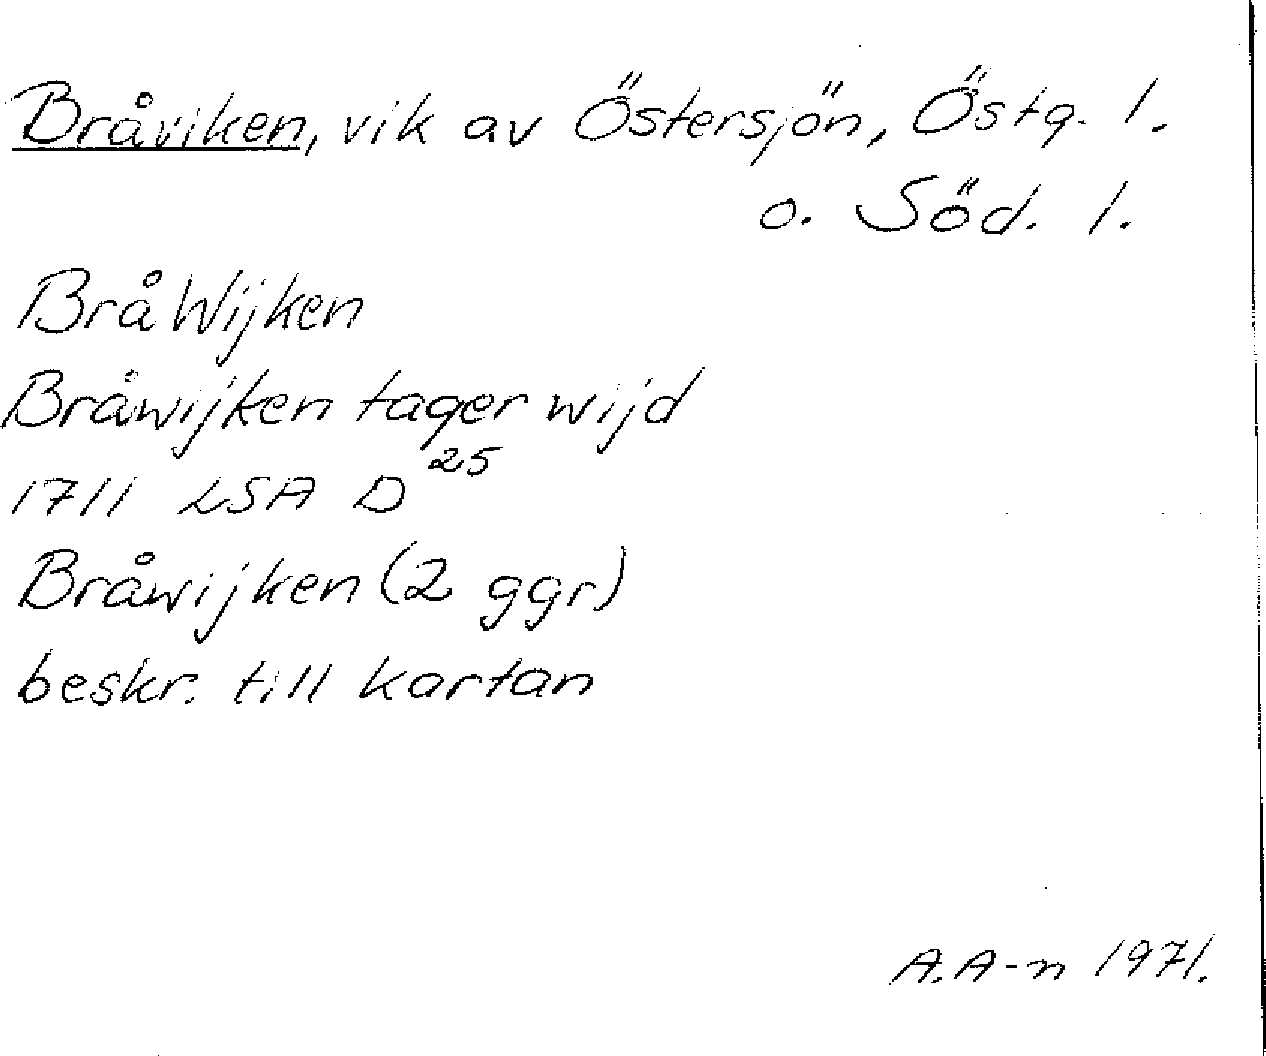 Bråviken, vik av Östersjön, Östg. l.
o. Söd. l.
BråWijken
Bråwijken tager wijd
1711 LSA D 25
Bråwijken (2 ggr)
beskr. till kartan
A.A-n 1971.